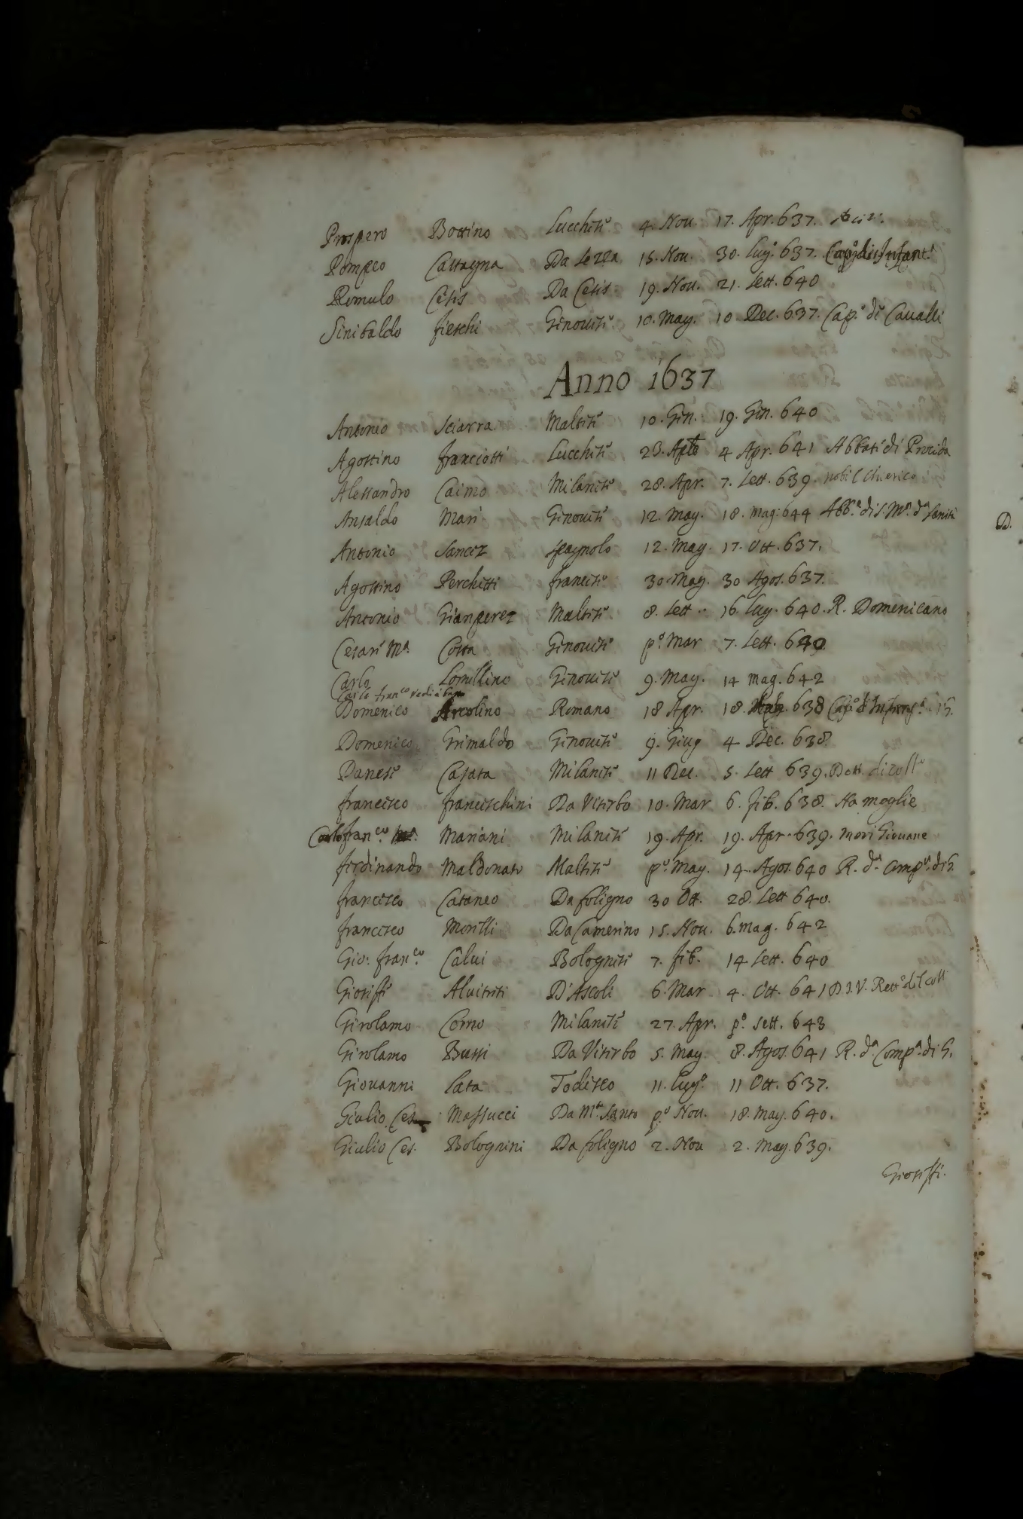 Prospero Bottino Lucchese 4. Nou. 17. Apr. 637.
Pompeo Castagna Da Lezza 15. Nou. 30. Lug. 637. Cap. di Infant.
Romulo Cesis Da Cesis 19. Nou. 21. Sett. 640
Sinibaldo fieschi Genouese 10. May. 10 Dec. 637. Cap.º di Caualli
Anno 1637
Antonio Sciarra Maltese 10. Gen. 19. Gen. 640
Agostino franciotti Lucchese 4 Apr. 641 Abbate di Procida
Alessandro Caimo Milanese 28. Apr. 7. Sett. 639. nobil Chierico
Ansaldo Mari Genouese 12. May. 18. mag. 644 Abb.e di S. M.a
Antonio Sancez spagnolo 12. May 17. Ott. 637.
Agostino Perchetti francese 30. May. 30 Agos. 637
Antonio Gianperez Maltese 8. Sett. 16 Lug. 640. R. Domenicano
Cesare M.a Costa Genouese p.º Mar 7. Sett. 640
Carlo Lomellino Genouese 9. May. 14 mag. 642
Carlo fran.co
Domenico Romano 18 Apr. 18 638
Domenico Grimaldo Genouese 9. Giug 4 Dec. 638
Danese Casata Milanese 11 Dec. 5. Sett 639.
francesco franceschini Da Viterbo 10. Mar 6. feb. 638. Ha moglie
Carlo fran.co Mariani Milanese 19. Apr. 19. Apr. 639. mori Giouane
ferdinando Maldonato Maltese p.º May. 14. Agos. 640 R. d.a Comp.a di G.
francesco Cataneo Da foligno 30 Ott. 28. Sett 640.
francesco Morelli Da Camerino 15. Nou. 6. mag. 642
Gio: fran.co Calui Bolognese 7. feb. 14 Sett. 640
Gioseffe Aluitreti D'Ascoli 6. Mar 4. Ott. 641
Girolamo Corno Milanese 27. Apr. p.º Sett. 643
Girolamo Bussi Da Viterbo 5. May. 8. Agos. 641 R. d.a Comp.a di G.
Giouanni Todesco 11. Lug.º 11 Ott. 637.
Giulio Ces. Massucci Da M.te Santo p.º Nou. 18. May. 640.
Giulio Ces. Bolognini Da foligno 2. Nou 2. May. 639.
Gioseffe.